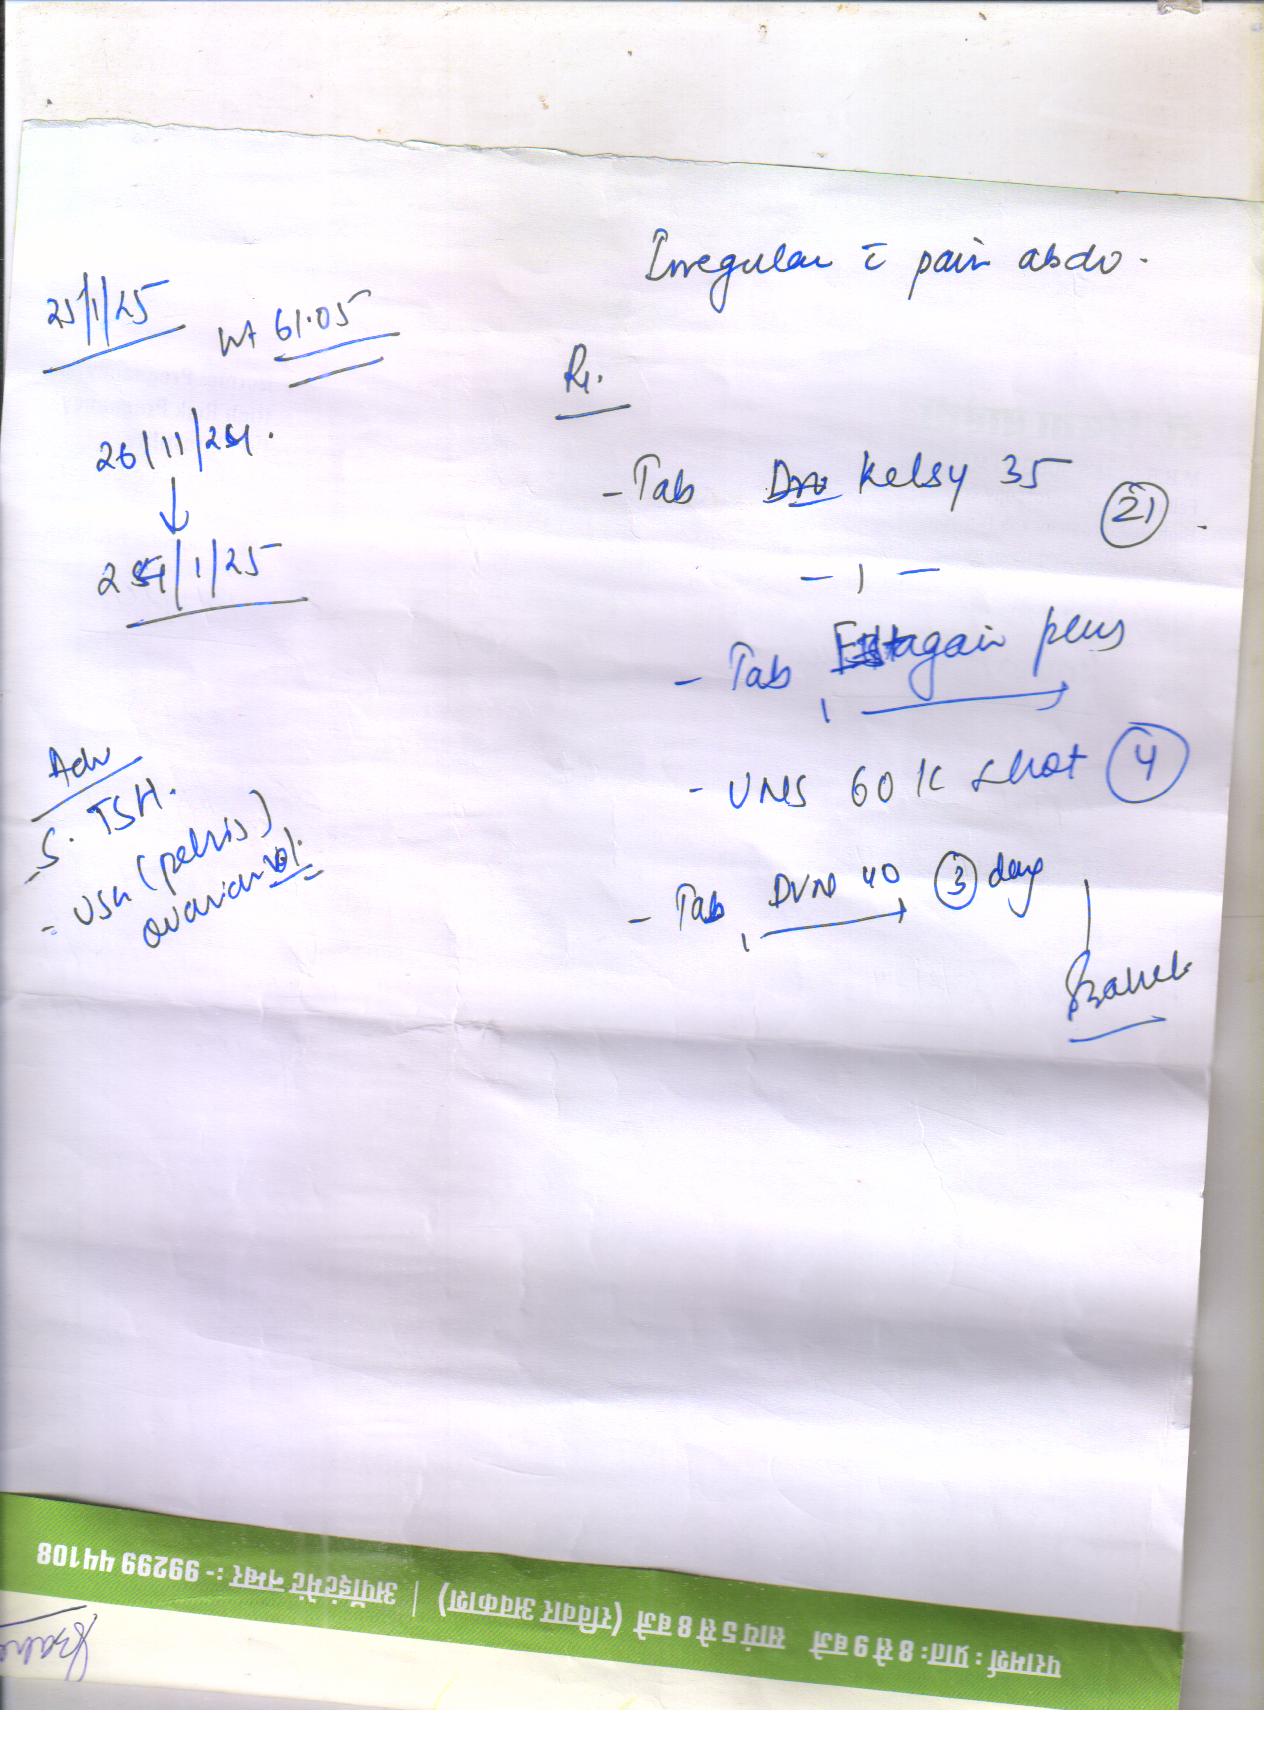 Irregular c̄ pain abdo.
25/1/25
Wt 61.05
Rx.
26/11/24.
↓
24/1/25
- Tab Kelsy 35 (21).
- 1 -
- Tab plus
1
- 60 K shot (4)
- Tab 40 (3) days
1
Adv
- S. TSH.
- USG (pelvis)
ovarian vol.
परामर्श : प्रातः 8 से 9 बजे सायं 5 से 8 बजे (रविवार अवकाश) | अपॉइंटमेंट नम्बर :- 99299 44108